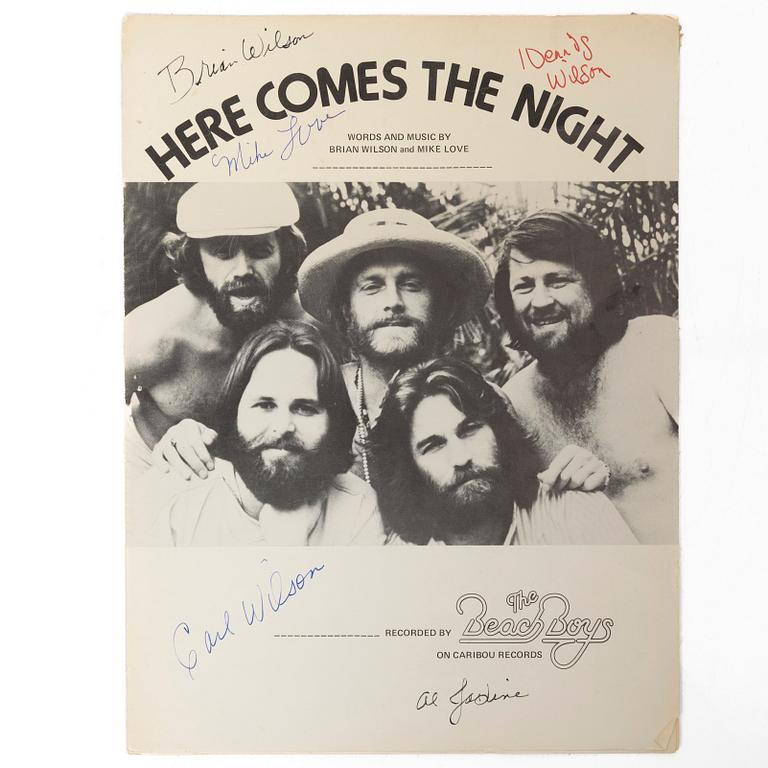 Brian Wilson
Dennis
Wilson
HERE COMES THE NIGHT
Mike Love
WORDS AND MUSIC BY
BRIAN WILSON and MIKE LOVE
Carl Wilson
RECORDED BY The Beach Boys
ON CARIBOU RECORDS
Al Jardine